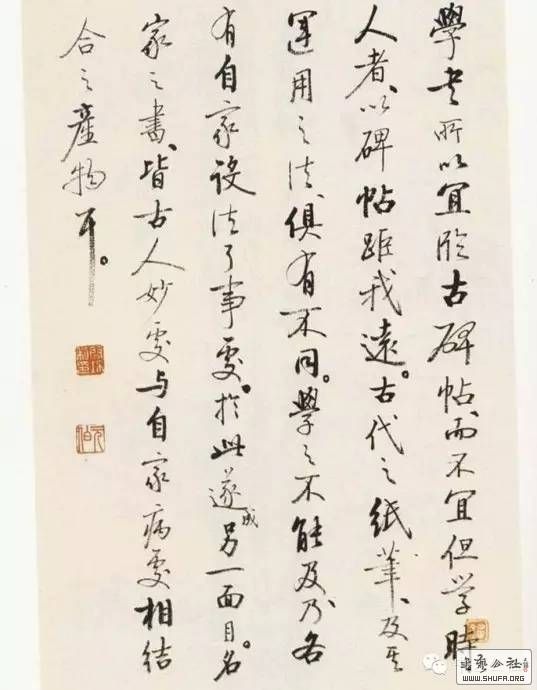 學書所以宜臨古碑帖而不宜但学時
人者、以碑帖距我遠。古代之紙筆、及其
運用之法、俱有不同。學之不能及、乃各
有自家设法了事處。於此遂成另一面目。名
家之書、皆古人妙處与自家病處相結
合之產物耳。
書藝公社
www.SHUFA.ORG